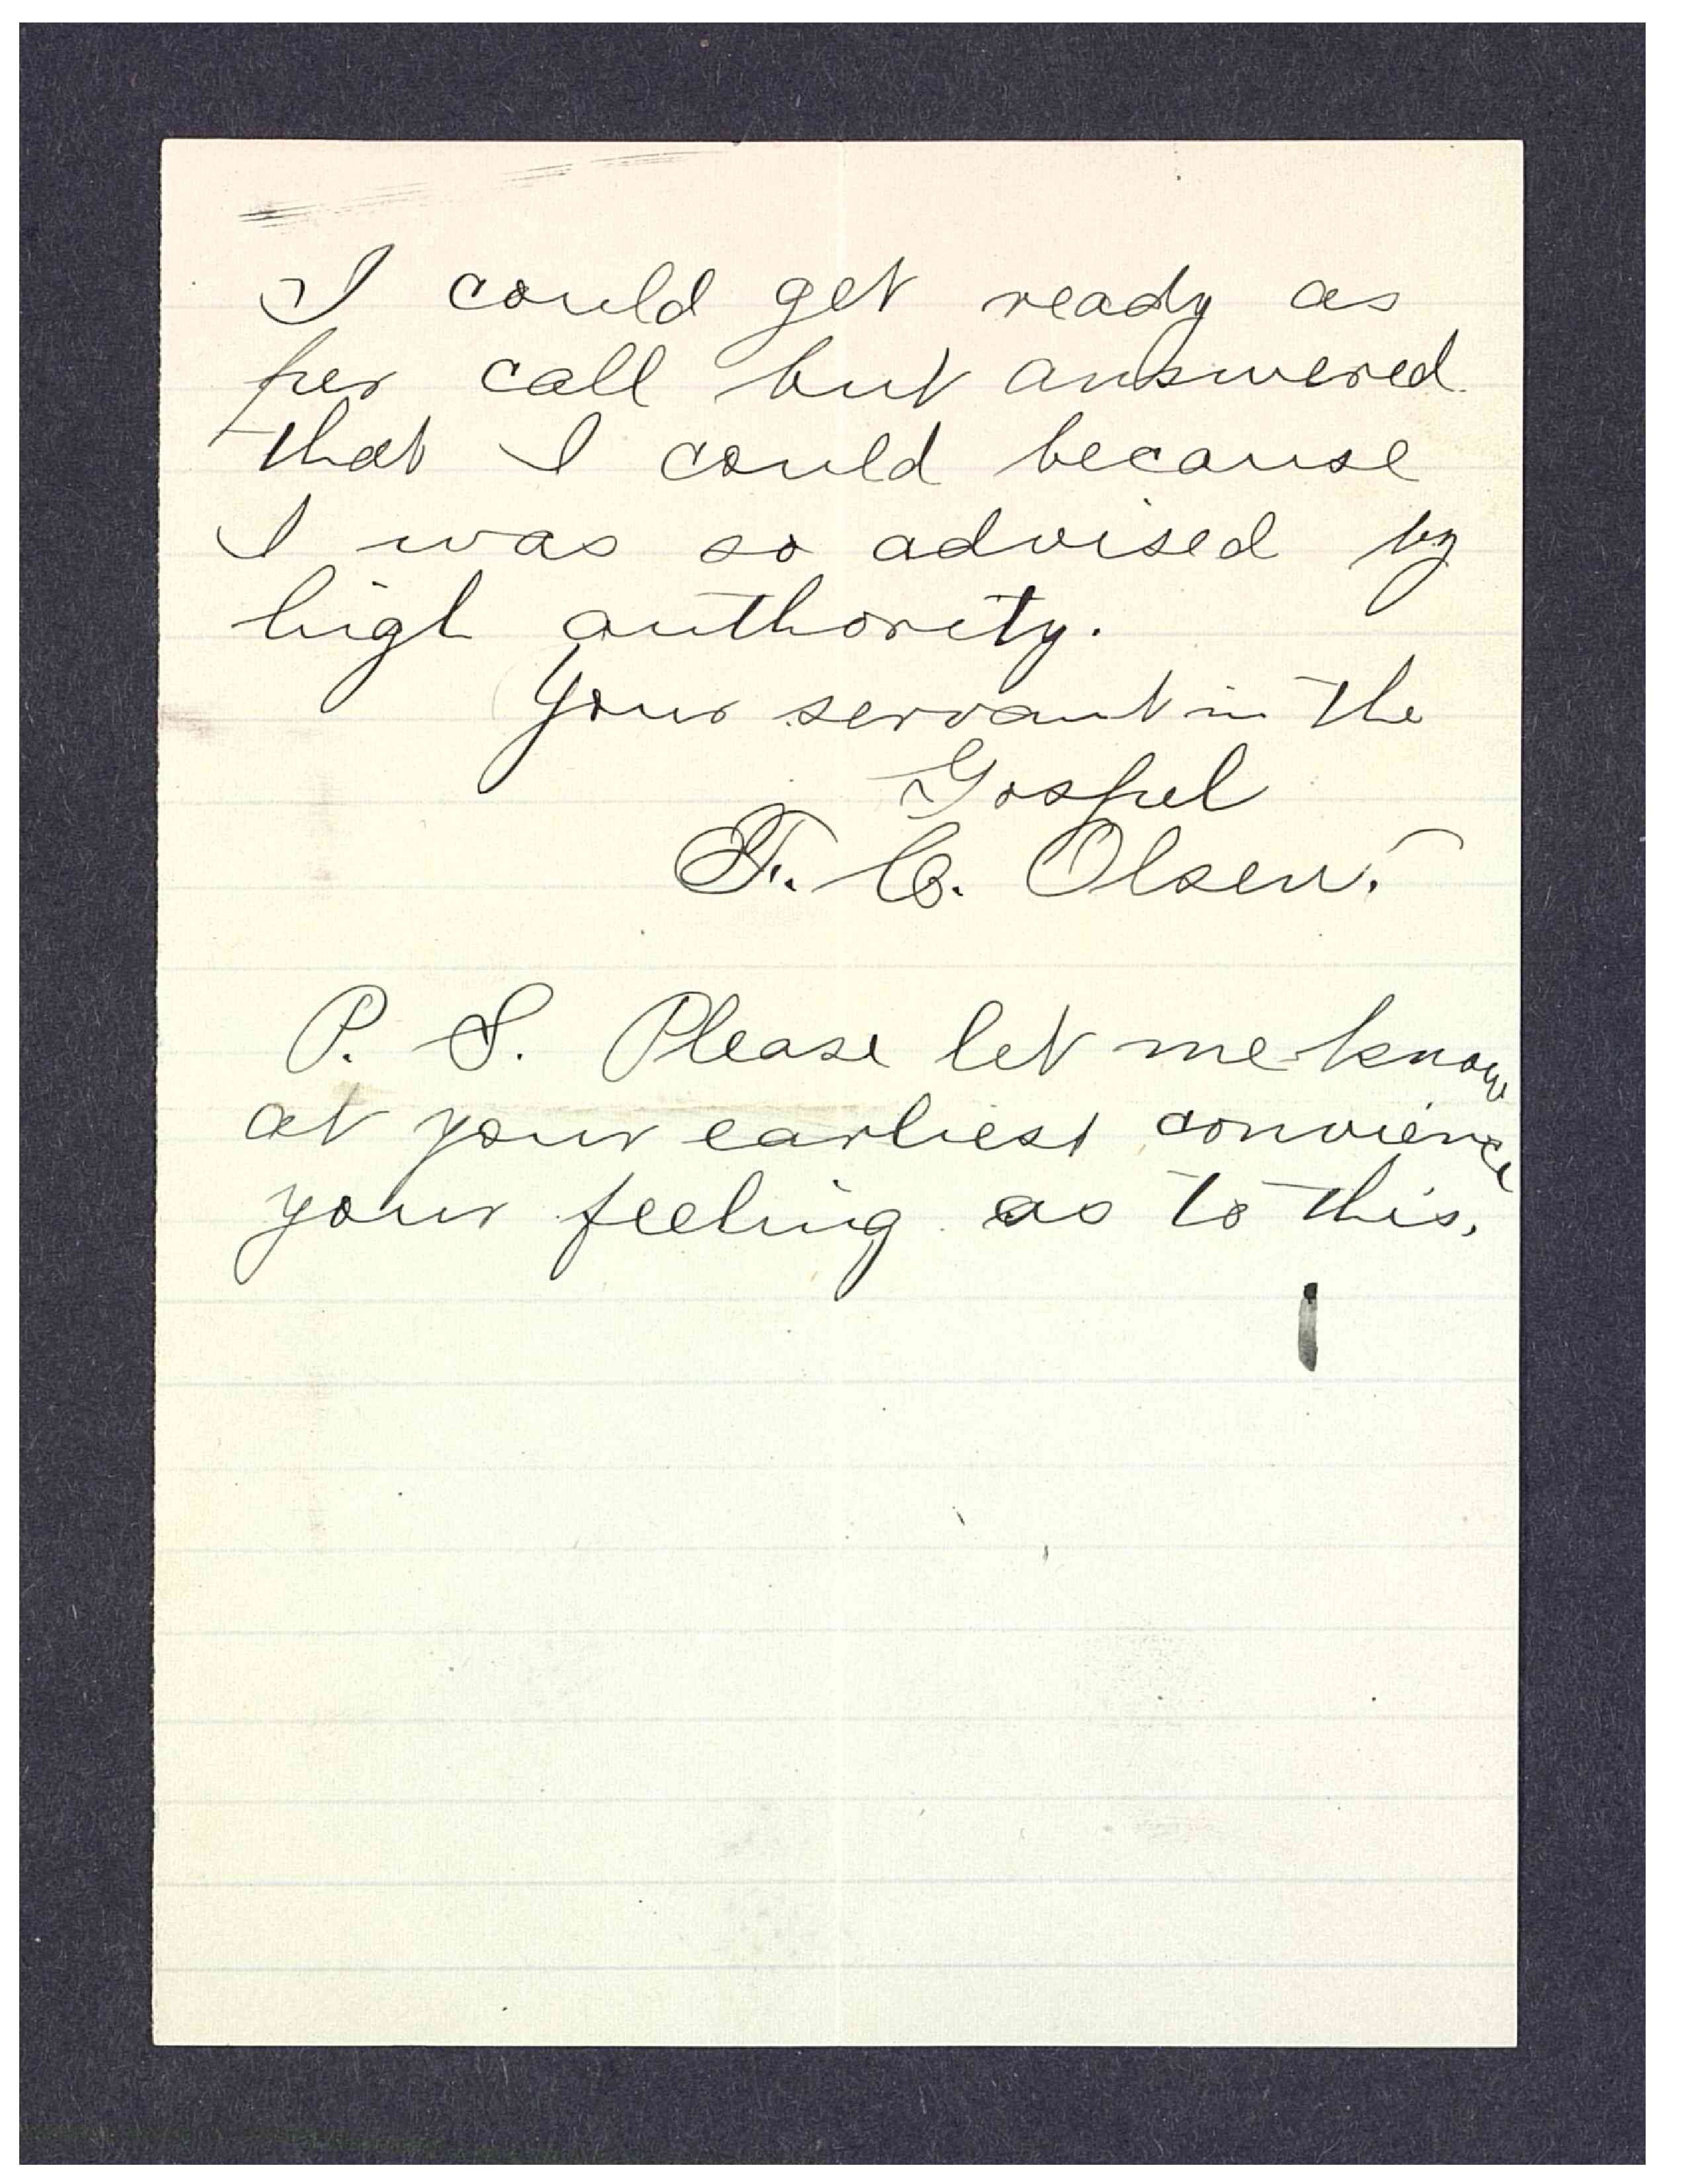 I could get ready as
per call but answered
that I could because
I was so advised by
high authority.
Your servant in the
Gospel
F. C. Olsen.
P. S. Please let me know
at your earliest convience
your feeling as to this.